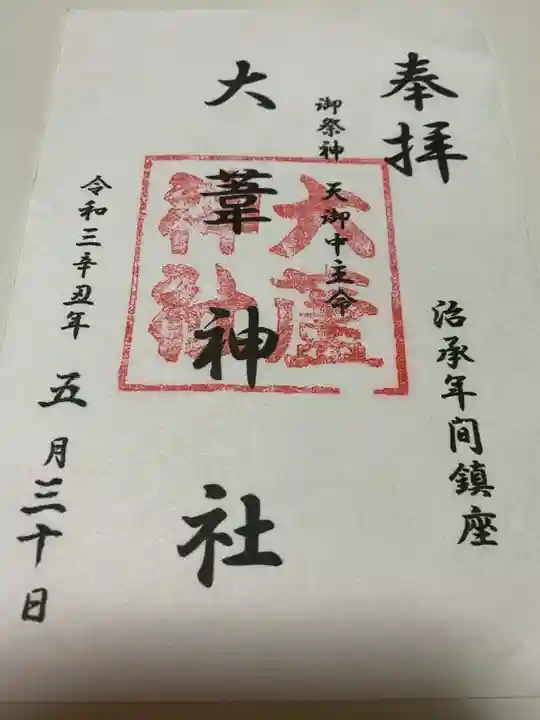 奉拝
治承年間鎮座
御祭神 天御中主命
大葦神社
令和三辛丑年 五月三十日